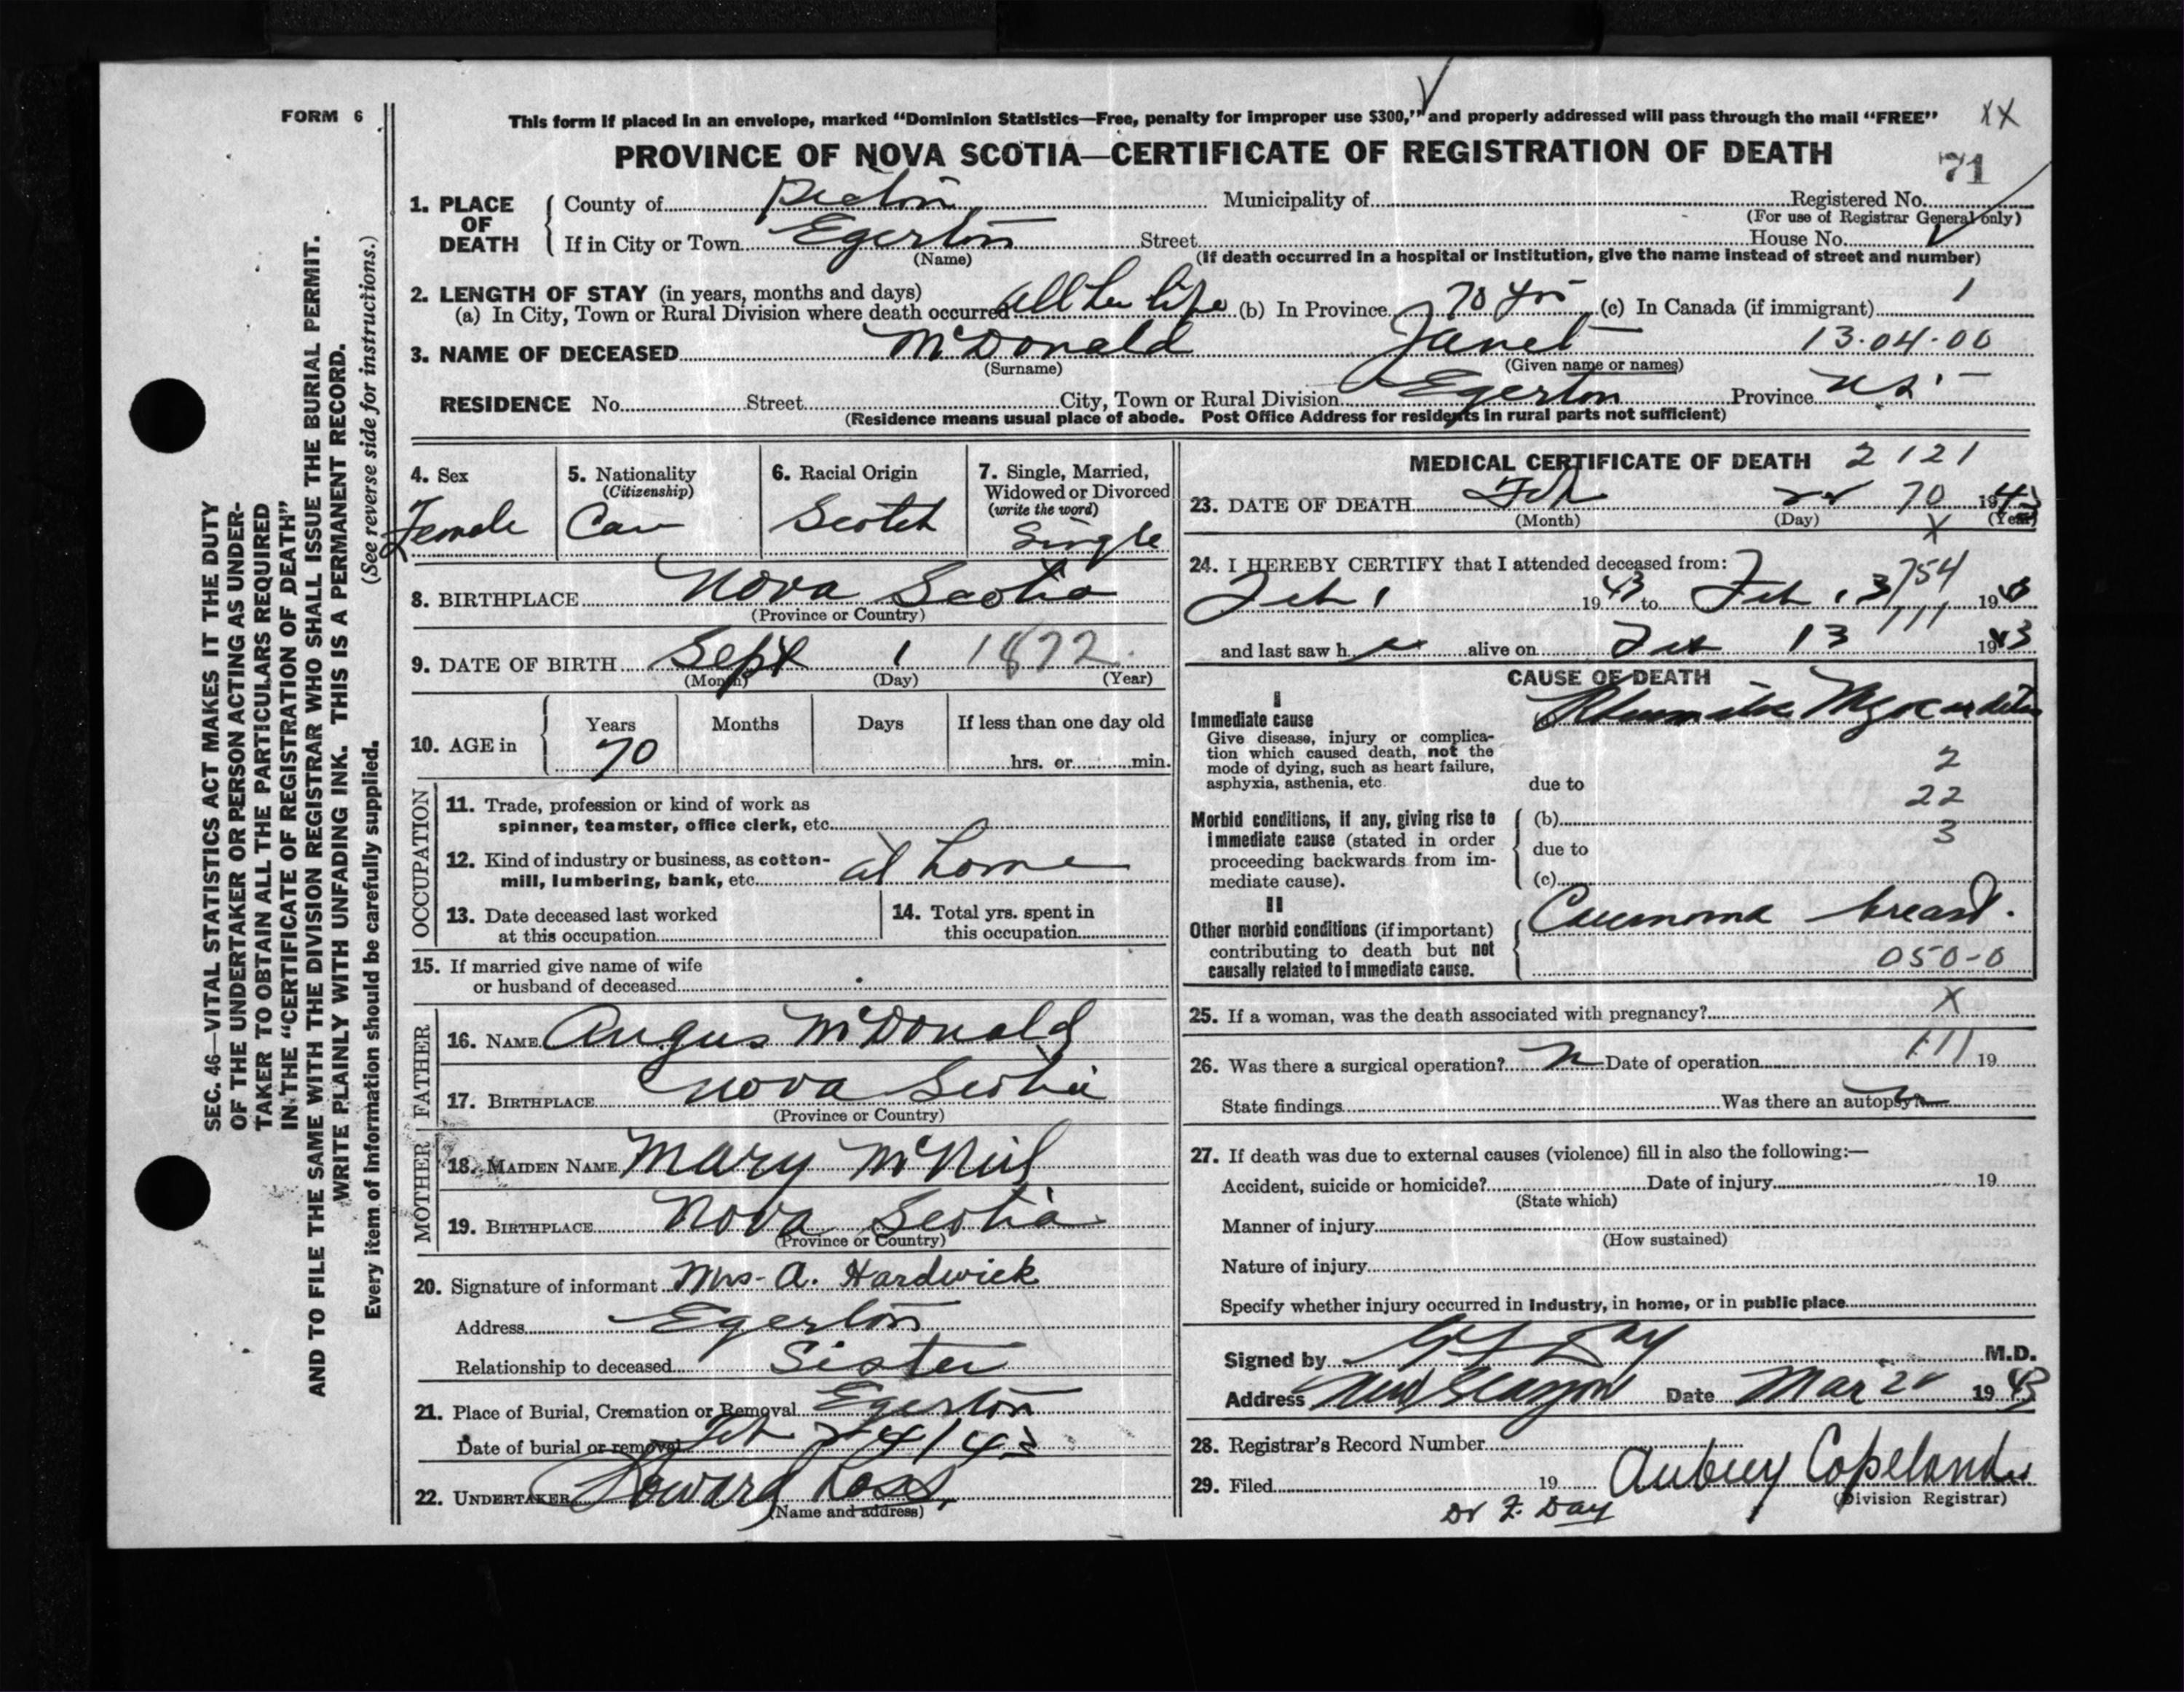 FORM 6
This form if placed in an envelope, marked “Dominion Statistics—Free, penalty for improper use $300,” and properly addressed will pass through the mail “FREE”
XX
PROVINCE OF NOVA SCOTIA—CERTIFICATE OF REGISTRATION OF DEATH
71
1. PLACE OF DEATH
County of Pictou Municipality of Registered No.
(For use of Registrar General only)
If in City or Town Egerton Street House No.
(Name) (If death occurred in a hospital or institution, give the name instead of street and number)
2. LENGTH OF STAY (in years, months and days)
(a) In City, Town or Rural Division where death occurred all her life (b) In Province 70 yrs (c) In Canada (if immigrant) 1
3. NAME OF DECEASED McDonald Janet 13·04·00
(Surname) (Given name or names)
RESIDENCE No. Street City, Town or Rural Division Egerton Province N.S.
(Residence means usual place of abode. Post Office Address for residents in rural parts not sufficient)
4. Sex
Female
5. Nationality
(Citizenship)
Can
6. Racial Origin
Scotch
7. Single, Married,
Widowed or Divorced
(write the word)
Single
8. BIRTHPLACE Nova Scotia
(Province or Country)
9. DATE OF BIRTH Sept 1 1872.
(Month) (Day) (Year)
10. AGE in
Years Months Days If less than one day old
70 hrs. or min.
OCCUPATION
11. Trade, profession or kind of work as
spinner, teamster, office clerk, etc.
12. Kind of industry or business, as cotton-
mill, lumbering, bank, etc. at home
13. Date deceased last worked
at this occupation
14. Total yrs. spent in
this occupation
15. If married give name of wife
or husband of deceased
FATHER
16. NAME Angus McDonald
17. BIRTHPLACE Nova Scotia
(Province or Country)
MOTHER
18. MAIDEN NAME Mary McNeil
19. BIRTHPLACE Nova Scotia
(Province or Country)
20. Signature of informant Mrs. A. Hardwick
Address Egerton
Relationship to deceased Sister
21. Place of Burial, Cremation or Removal Egerton
Date of burial or removal Feb 24/43
22. UNDERTAKER Howard Ross
(Name and address)
MEDICAL CERTIFICATE OF DEATH 2121
23. DATE OF DEATH Feb 22 70 1943
(Month) (Day) (Year)
X
24. I HEREBY CERTIFY that I attended deceased from: 754
Feb 1 1943 to Feb 13 1943
111
and last saw h er alive on Feb 13 1943
CAUSE OF DEATH
I
Immediate cause
Give disease, injury or complica-
tion which caused death, not the
mode of dying, such as heart failure,
asphyxia, asthenia, etc.
(a) Rheumatic Myocarditis
2
due to
22
Morbid conditions, if any, giving rise to
immediate cause (stated in order
proceeding backwards from im-
mediate cause).
(b)
3
due to
(c)
II
Other morbid conditions (if important)
contributing to death but not
causally related to immediate cause.
Carcinoma breast.
050-0
25. If a woman, was the death associated with pregnancy? X
26. Was there a surgical operation? n Date of operation 111 19
State findings Was there an autopsy? n
27. If death was due to external causes (violence) fill in also the following:—
Accident, suicide or homicide? Date of injury 19
(State which)
Manner of injury
(How sustained)
Nature of injury
Specify whether injury occurred in industry, in home, or in public place
Signed by Day M.D.
Address New Glasgow Date Mar 1943
28. Registrar's Record Number
29. Filed 19 Aubrey Copeland
(Division Registrar)
Dr F. Day
SEC. 46—VITAL STATISTICS ACT MAKES IT THE DUTY
OF THE UNDERTAKER OR PERSON ACTING AS UNDER-
TAKER TO OBTAIN ALL THE PARTICULARS REQUIRED
IN THE “CERTIFICATE OF REGISTRATION OF DEATH”
AND TO FILE THE SAME WITH THE DIVISION REGISTRAR WHO SHALL ISSUE THE BURIAL PERMIT.
WRITE PLAINLY WITH UNFADING INK. THIS IS A PERMANENT RECORD.
Every item of information should be carefully supplied. (See reverse side for instructions.)